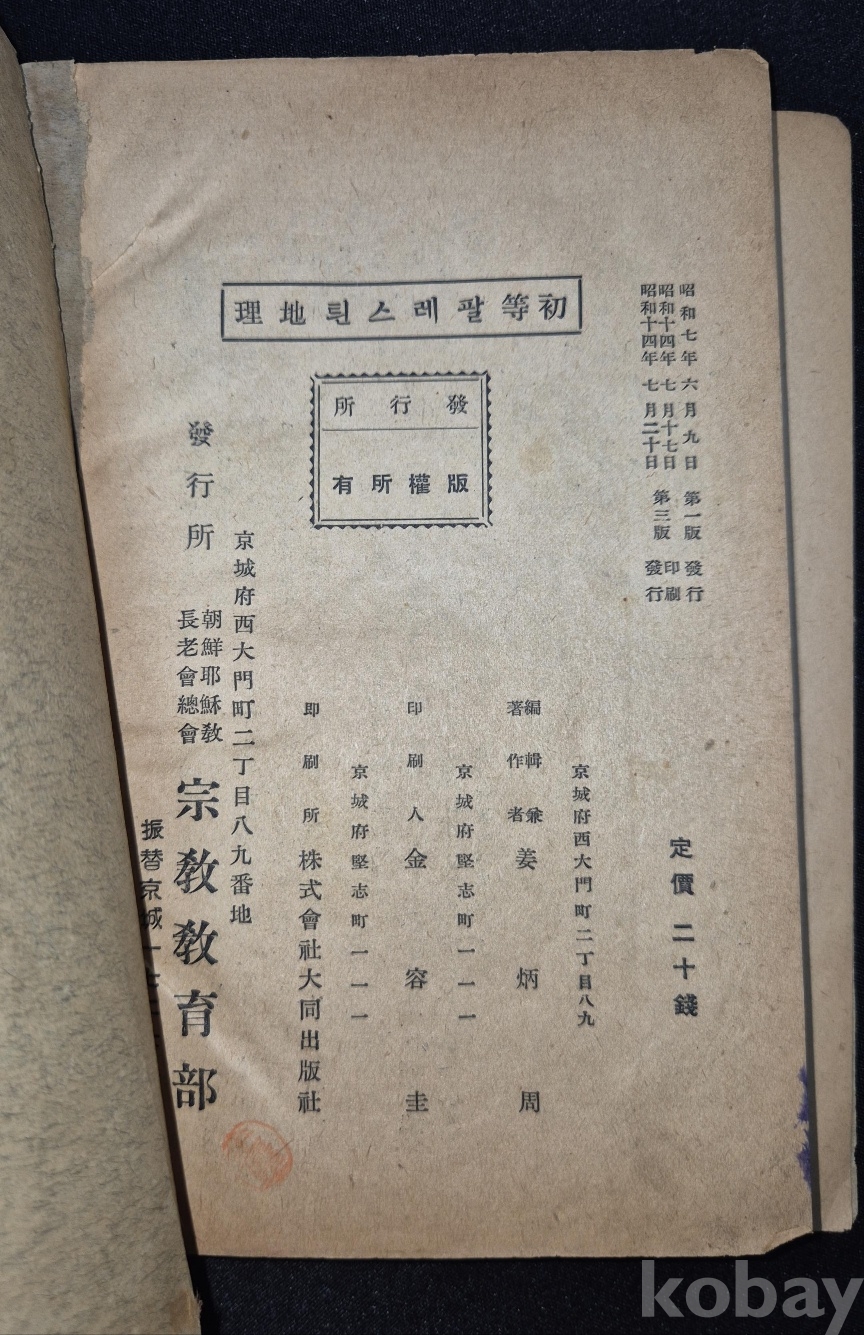 初等팔레스틘地理
昭和七年六月九日 第一版發行
昭和十四年七月十七日 第三版印刷
昭和十四年七月二十日 發行
發行所
版權所有
定價 二十錢
京城府西大門町二丁目八九
編輯兼著作者 姜炳周
京城府堅志町一一一
印刷人 金容圭
京城府堅志町一一一
即刷所 株式會社大同出版社
京城府西大門町二丁目八九番地
發行所 朝鮮耶穌敎長老會總會 宗敎敎育部
振替京城一
kobay